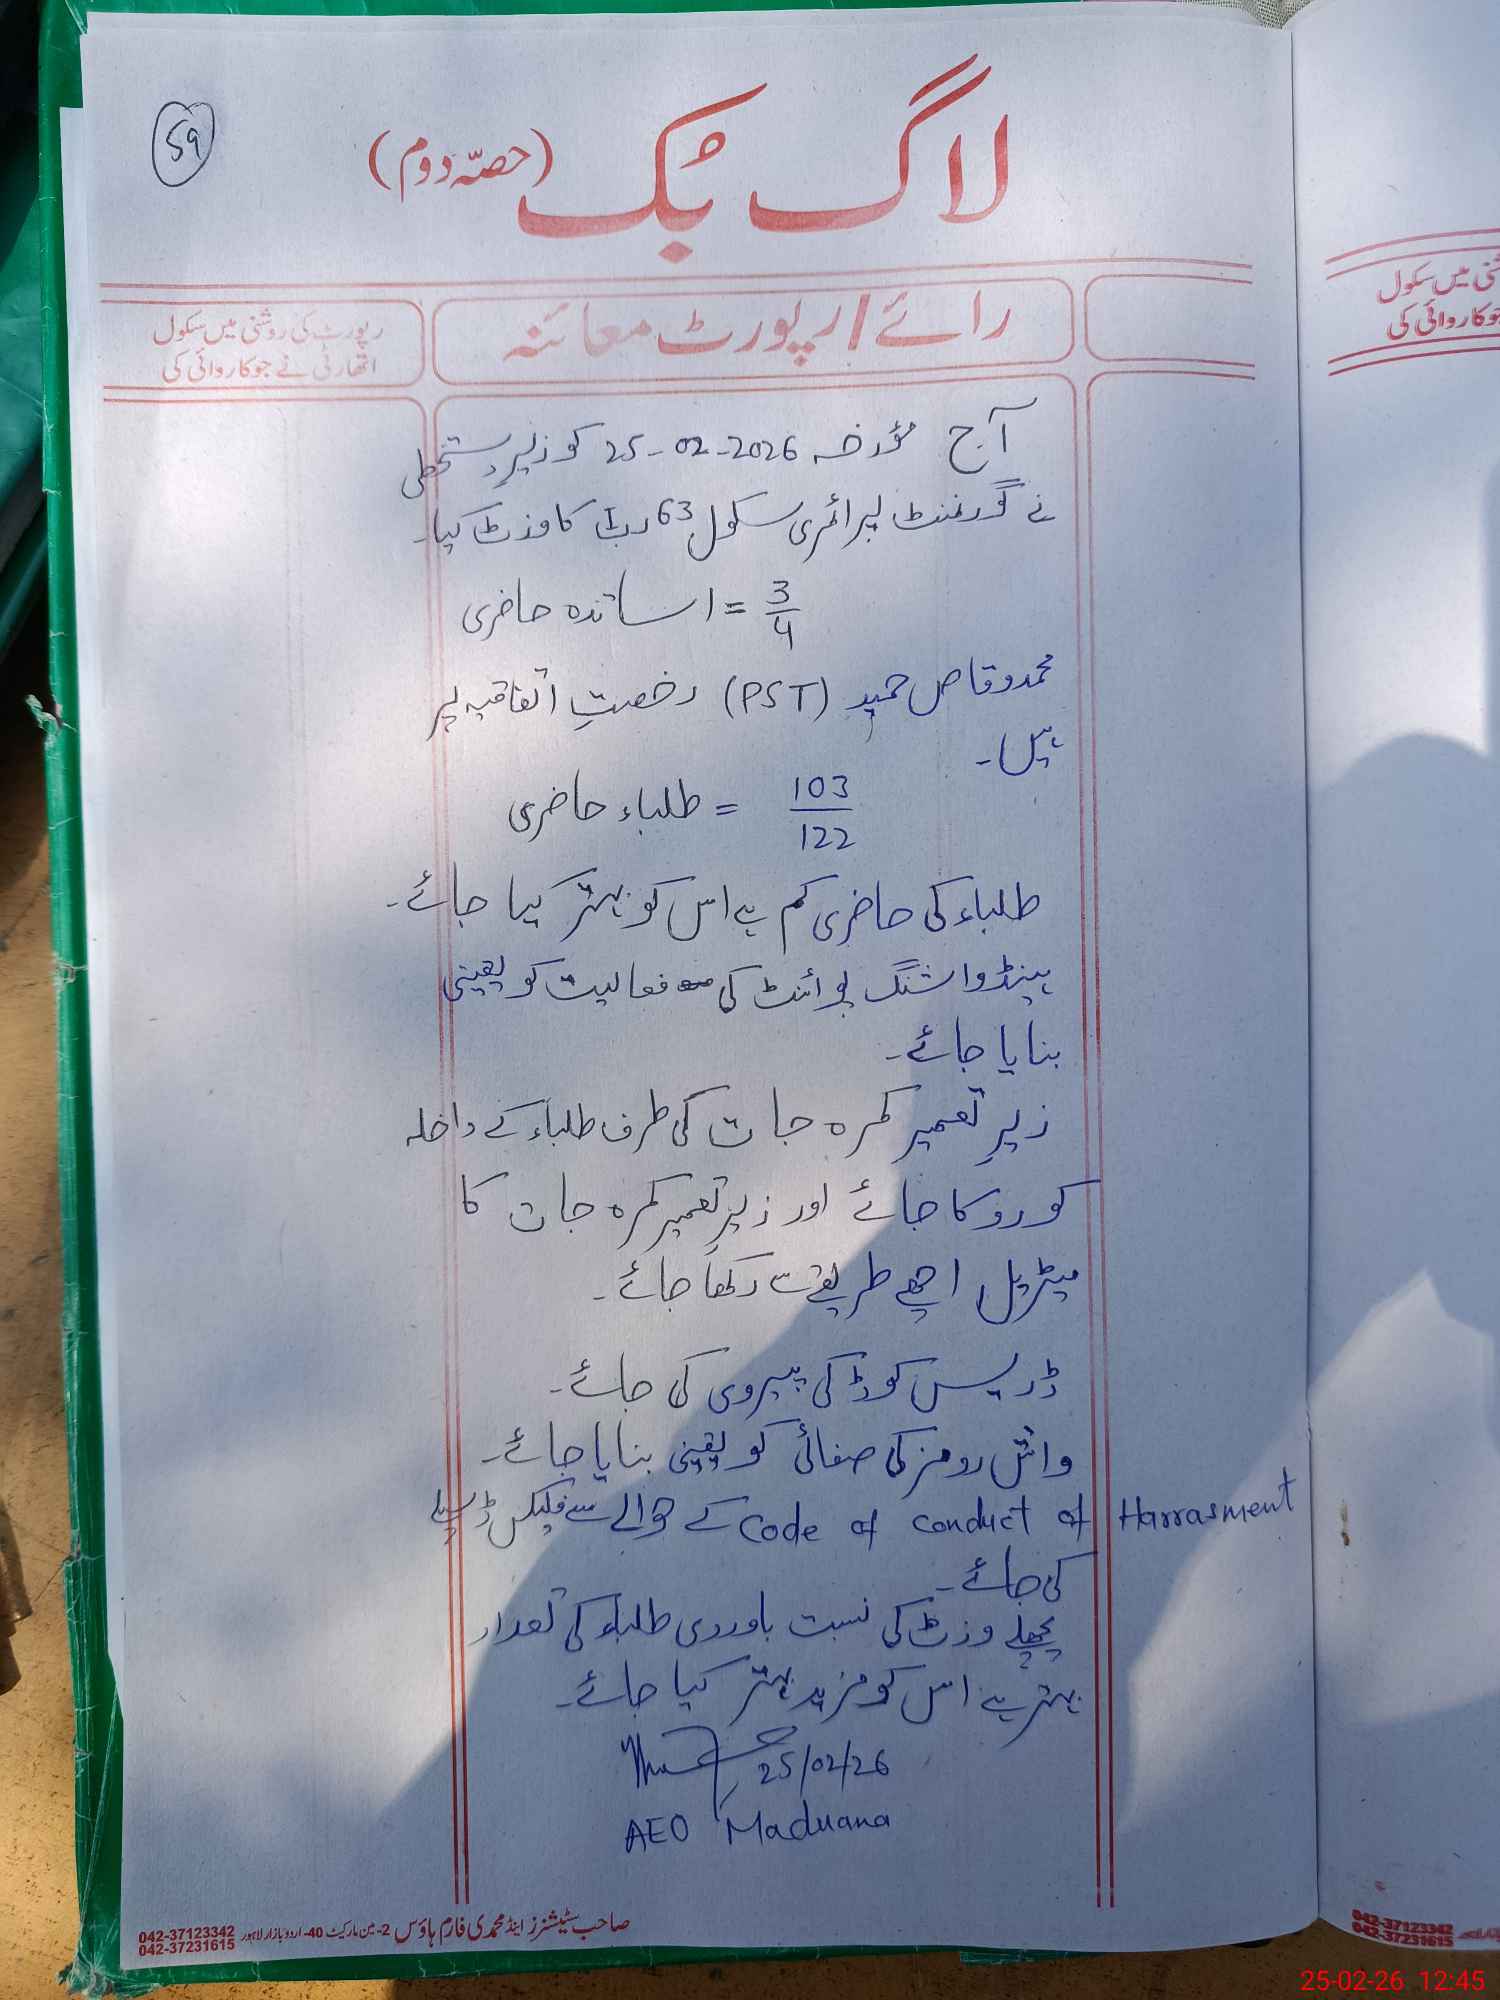 59
لاگ بُک (حصّہ دوم)
رائے / رپورٹ معائنہ
رپورٹ کی روشنی میں سکول
اتھارٹی نے جو کاروائی کی
آج مؤرخہ 25-02-2026 کو زیرِ دستخطی
نے گورنمنٹ پرائمری سکول 63 ر ب کا وزٹ کیا۔
اساتذہ حاضری = 3/4
محمد وقاص حمید (PST) رخصتِ اتفاقیہ پر
ہیں۔
طلباء حاضری = 103/122
طلباء کی حاضری کم ہے اس کو بہتر کیا جائے۔
ہینڈ واشنگ پوائنٹ کی فعالیت کو یقینی
بنایا جائے۔
زیرِ تعمیر کمرہ جات کی طرف طلباء کے داخلہ
کو روکا جائے اور زیرِ تعمیر کمرہ جات کا
میٹریل اچھے طریقے سے رکھا جائے۔
ڈریس کوڈ کی پیروی کی جائے۔
واش رومز کی صفائی کو یقینی بنایا جائے۔
Code of conduct of Harrasment کے حوالے سے فلیکس ڈسپلے
کی جائے۔
پچھلے وزٹ کی نسبت باوردی طلباء کی تعداد
بہتر ہے اس کو مزید بہتر کیا جائے۔
25/02/26
AEO Maduana
صاحب سٹیشنرز اینڈ محمدی فارم ہاؤس 2- مین مارکیٹ 40- اردو بازار لاہور 042-37123342
042-37231615
شنی میں سکول
جو کاروائی کی
042-37123342
042-37231615
25-02-26 12:45